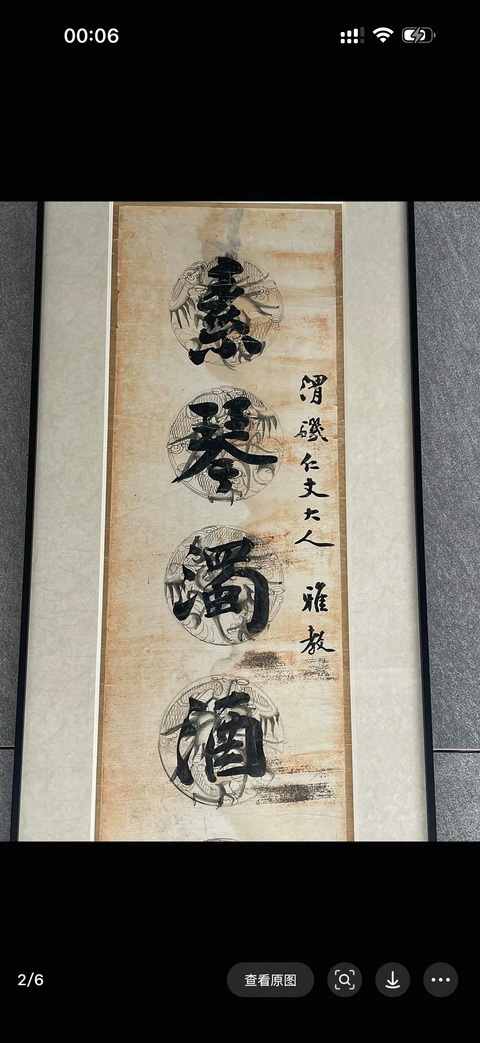 00:06
素琴濁酒
渭磯仁丈大人 雅教
2/6
查看原图